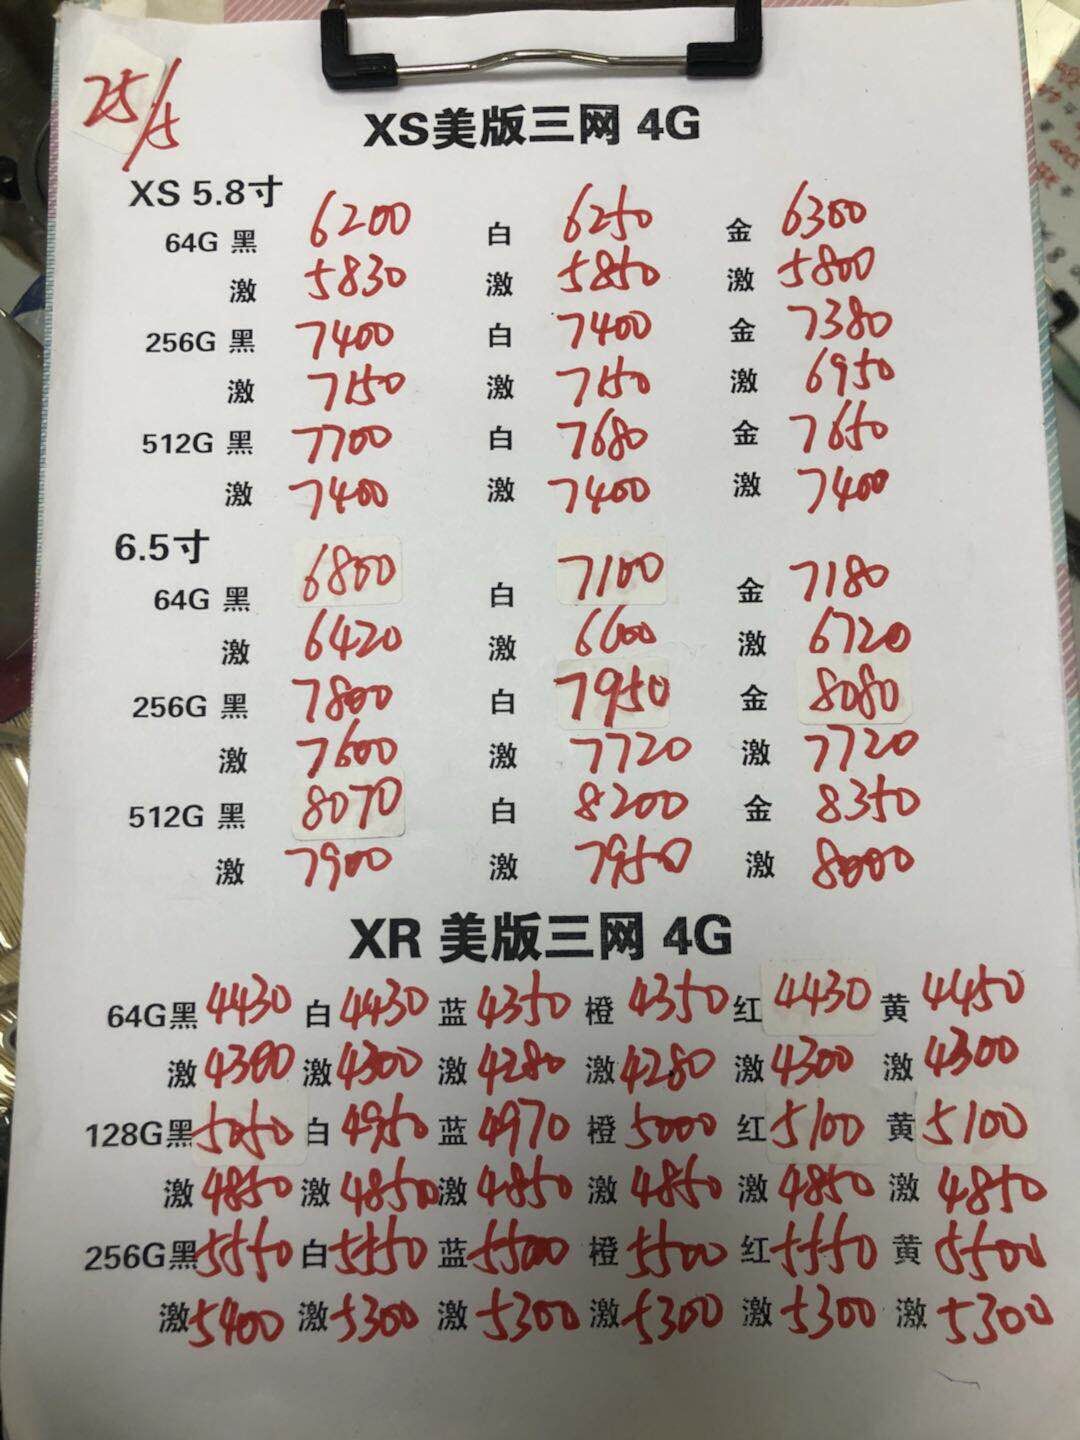 25/5
XS美版三网 4G
XS 5.8寸
64G 黑 6200 白 6250 金 6300
激 5830 激 5850 激 5800
256G 黑 7400 白 7400 金 7380
激 7150 激 7150 激 6950
512G 黑 7700 白 7680 金 7650
激 7400 激 7400 激 7400
6.5寸
64G 黑 6800 白 7100 金 7180
激 6420 激 6600 激 6720
256G 黑 7800 白 7950 金 8080
激 7600 激 7720 激 7720
512G 黑 8070 白 8200 金 8350
激 7900 激 7950 激 8000
XR 美版三网 4G
64G黑 4430 白 4430 蓝 4350 橙 4350 红 4430 黄 4450
激 4300 激 4300 激 4280 激 4280 激 4300 激 4300
128G黑 5050 白 4950 蓝 4970 橙 5000 红 5100 黄 5100
激 4850 激 4850 激 4850 激 4850 激 4850 激 4850
256G黑 5550 白 5550 蓝 5500 橙 5500 红 5550 黄 5500
激 5400 激 5300 激 5300 激 5300 激 5300 激 5300